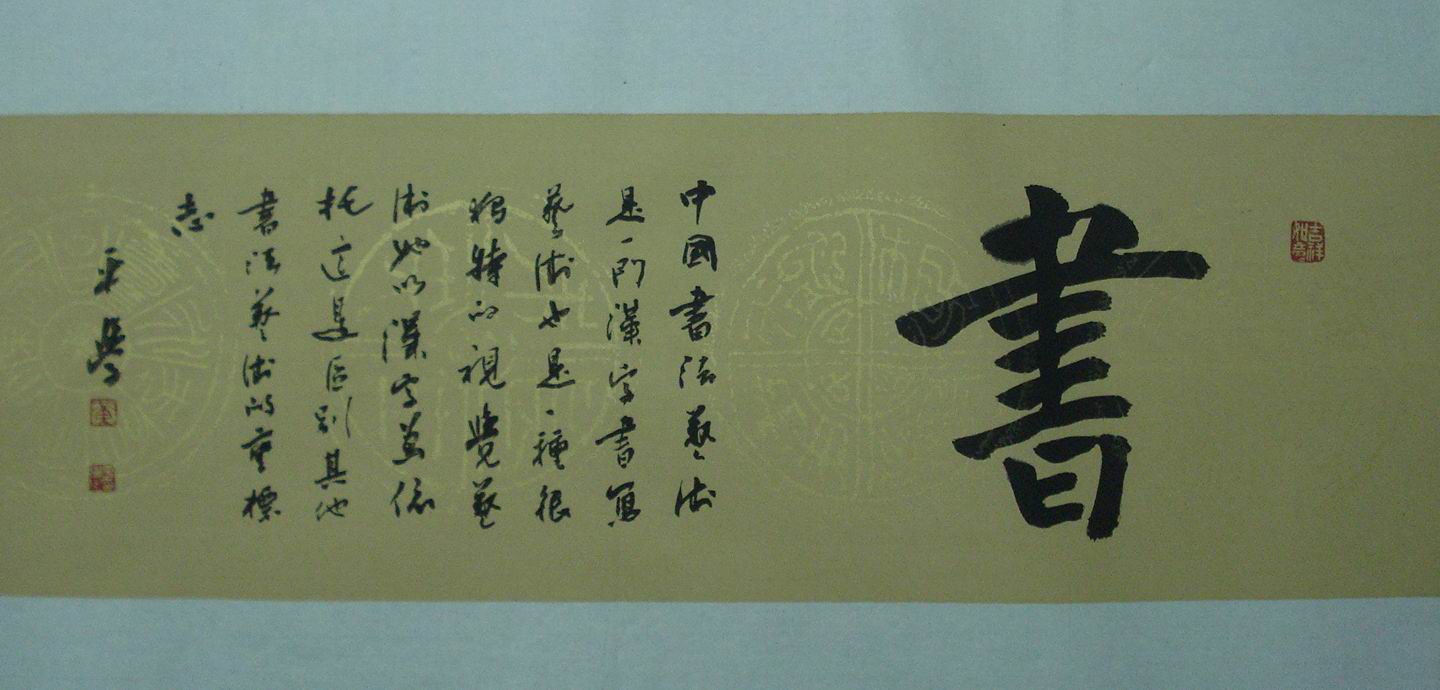 吉祥
書
中國書法藝術
是一門漢字書寫
藝術也是一種很
獨特的視覺藝
術她以漢字為依
托這是區別其他
書法藝術的重標
志